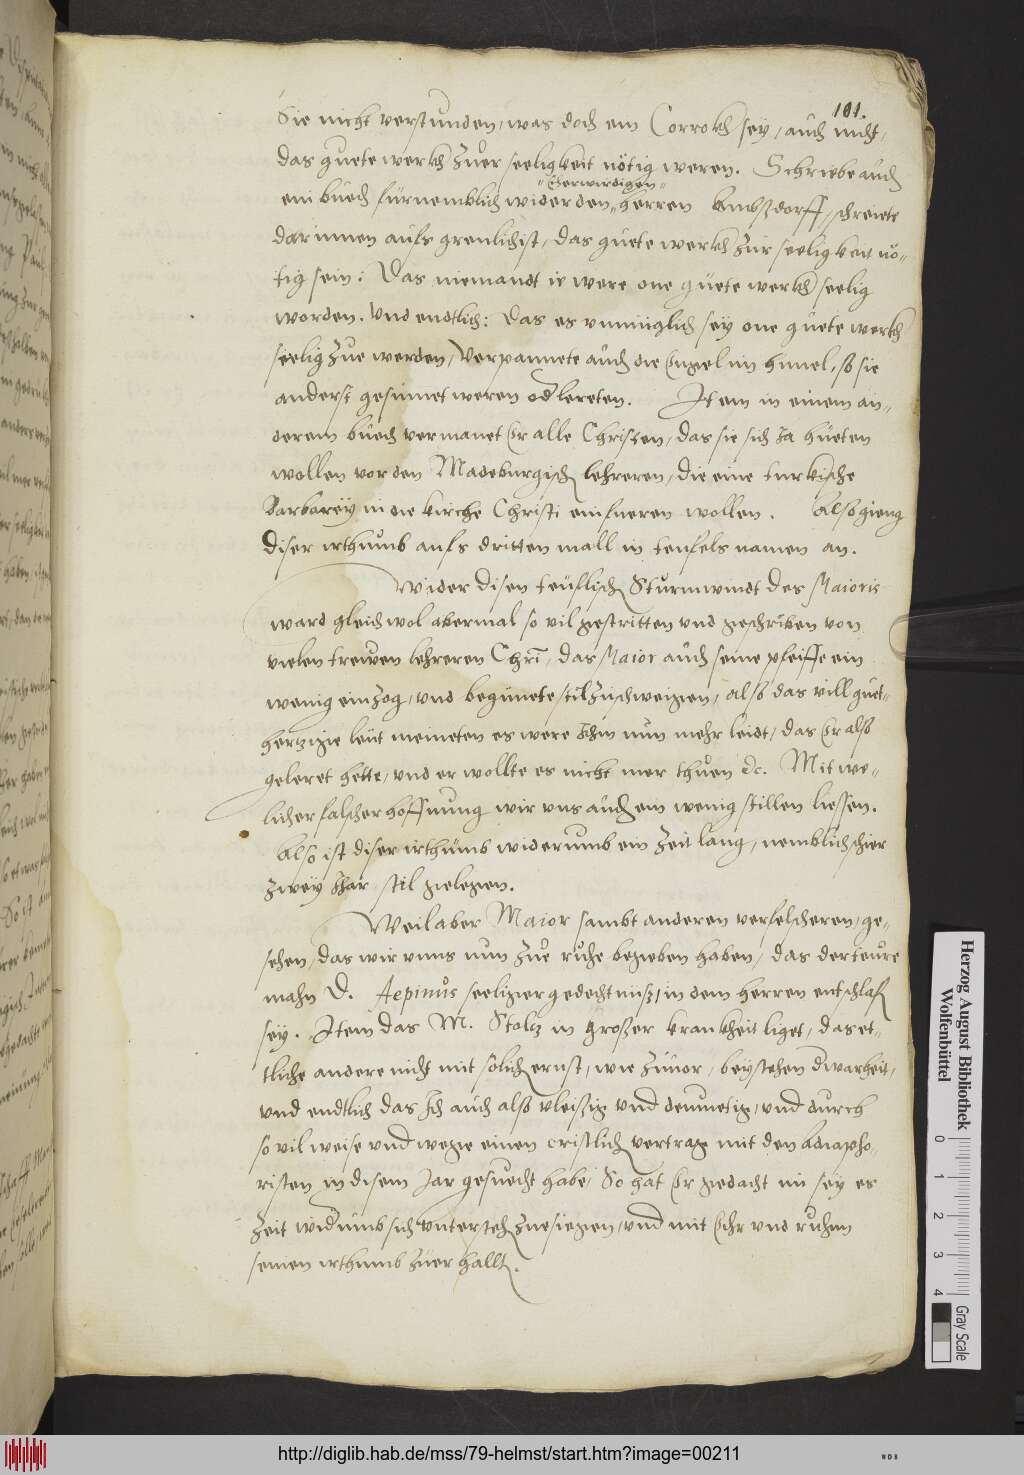 101.
Sie nicht verstunden, was doch ein Corrolch sey, auch nicht,
das guete werch zuer seeligkeit nötig weren. Schriebe auch
"Eerwirdigen"
ein buech fürnemblich wider den " herren Ambszdorff, schreiete
darinnen aufs greulichist, das guete werch zur seeligkeit nö-
tig sein: Das niemandt ie were one guete werch seelig
worden. Und endtlich: Das es unmüglich sey one guete werch
seelig zue werden, Verpannete auch die Engel im himel, so sie
anderst gesinnet weren oder lereten. Item in einem an-
derem buech vermanet Er alle Christen, das sie sich Ja hüeten
wollen vor den Madeburgischen lehreren, die eine turkische
Barbarey in die kirche Christi einfueren wollen. Also gieng
diser irthumb aufs dritten mall in teufels namen an.
Wider disen teuflischen Sturmwindt des Maioris
ward gleichwol abermal so vil gestritten und geschriben von
vielen trewen lehreren Christi, das Maior auch seine pfeiffe ein
wenig einzog, und begunete stilzuschweigen, also das vill guet-
hertzige leut meineten es were Ihm nun mehr leidt, das Er also
geleret hette, und er wollte es nicht mer thuen etc. Mit we-
licher falscher hoffnung wir uns auch ein wenig stillen liessen.
Also ist diser irthumb widerumb ein zeit lang, nemblich schier
zwey Ihar stil gelegen.
Weil aber Maior sambt anderen verfelscheren, ge-
sehen, das wir unns nun zue ruhe begeben haben, das der teure
mahn D. Aepinus seeliger gedechtnisz, in dem herren entschlafen
sey. Item das M. Stoltz in groszer krankheit liget, das et-
tliche andere nicht mit solichen ernst, wie zuvor, beystehen der warheit,
und endtlich das Ich auch also vleiszig und demuetig, und durch
so vil weise und wege einen cristlichen vertrag mit den Adiapho-
risten in disem Jar gesuecht habe, So hat Er gedacht nu sey es
zeit widerumb sich unterstehen zue siegen, und mit Ehr und ruhm
seinen irthumb zuer hallten.
Herzog August Bibliothek
Wolfenbüttel
0 1 2 3 4
Gray Scale
http://diglib.hab.de/mss/79-helmst/start.htm?image=00211